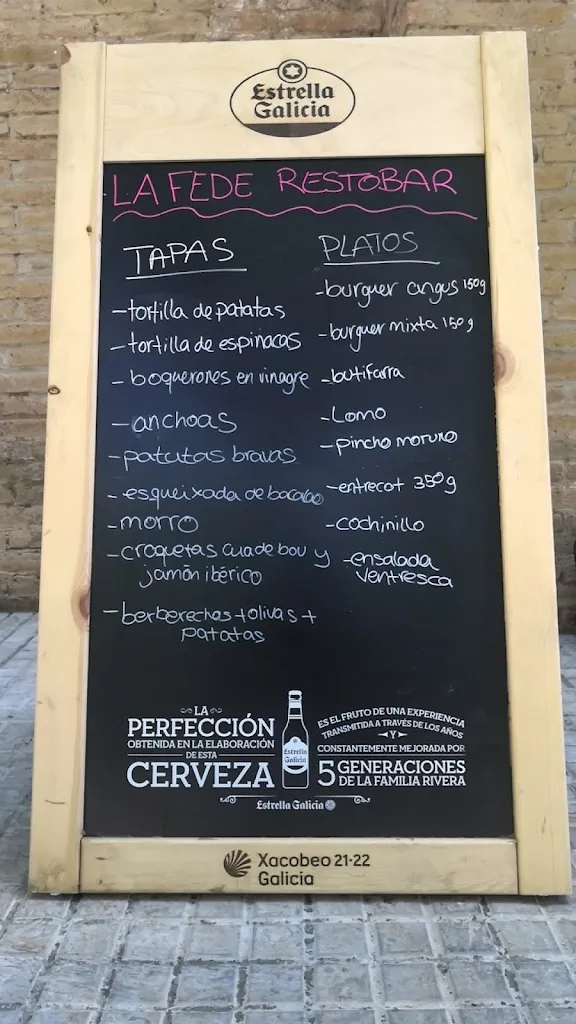 Estrella
Galicia
LA FEDE RESTOBAR
TAPAS
-tortilla de patatas
-tortilla de espinacas
-boquerones en vinagre
-anchoas
-patatas bravas
-esqueixada de bacalao
-morro
-croquetas cua de bou y
jamón ibérico
-berberechos+olivas+
patatas
PLATOS
-burguer angus 150g
-burguer mixta 150g
-butifarra
-Lomo
-pincho moruno
-entrecot 350g
-cochinillo
-ensalada
ventresca
LA
PERFECCIÓN
OBTENIDA EN LA ELABORACIÓN
DE ESTA
CERVEZA
Estrella
Galicia
ES EL FRUTO DE UNA EXPERIENCIA
TRANSMITIDA A TRAVÉS DE LOS AÑOS
Y
CONSTANTEMENTE MEJORADA POR
5 GENERACIONES
DE LA FAMILIA RIVERA
Estrella Galicia
Xacobeo 21·22
Galicia